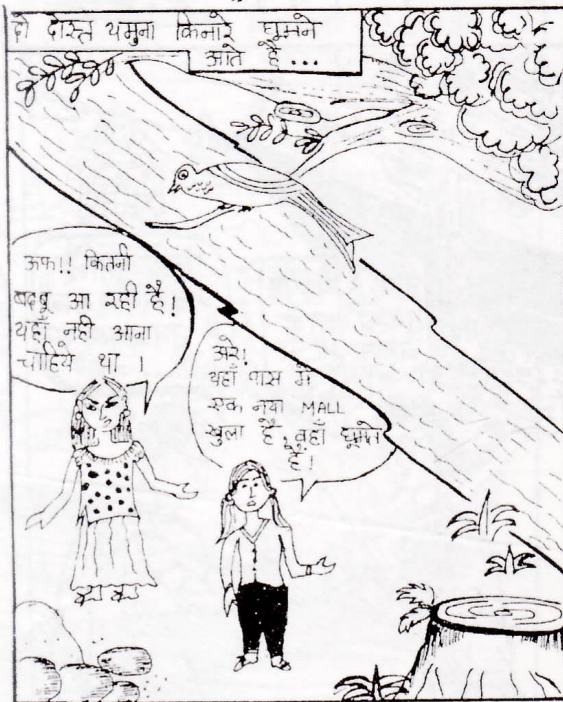 दो दोस्त यमुना किनारे घूमने
आते हैं...
ऊफ!! कितनी
बदबू आ रही है!
यहाँ नही आना
चाहिये था ।
अरे!
यहाँ पास में
एक नया MALL
खुला है, वहाँ घूमते
हैं!